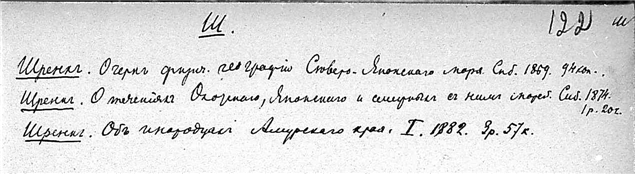 Ш.
122 ш
Шренкъ. Очеркъ физич. географіи Сѣверо-Японскаго моря. Спб. 1869. 94 коп.
Шренкъ. О теченіяхъ Охотскаго, Японскаго и смежныхъ съ ними морей. Спб. 1874.
1 р. 20 к.
Шренкъ. Объ инородцахъ Амурскаго края. I. 1882. 3 р. 57 к.